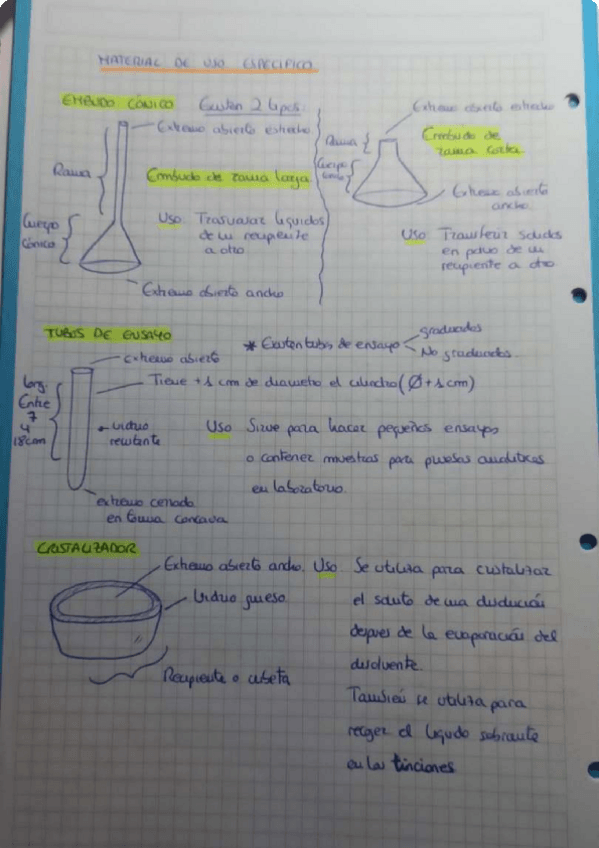 MATERIAL DE USO ESPECÍFICO
EMBUDO CÓNICO Existen 2 tipos:
Extremo abierto estrecho
Rama
Embudo de rama larga
Uso Trasvasar líquidos
de un recipiente
a otro
Cuerpo
cónico
Extremo abierto ancho
Extremo abierto estrecho
Rama
Embudo de
rama corta
Cuerpo
cónico
Extremo abierto
ancho
Uso Transferir sólidos
en polvo de un
recipiente a otro
TUBOS DE ENSAYO
* Existen tubos de ensayo
graduados
No graduados
extremo abierto
Tiene +1 cm de diámetro el cilindro (Ø +1 cm)
Long.
Entre
7
y
18cm
vidrio
resistente
Uso Sirve para hacer pequeños ensayos
o contener muestras para pruebas analíticas
en laboratorio.
extremo cerrado
en forma cóncava
CRISTALIZADOR
Extremo abierto ancho.
Vidrio grueso
Recipiente o cubeta
Uso Se utiliza para cristalizar
el soluto de una disolución
después de la evaporación del
disolvente.
También se utiliza para
recoger el líquido sobrante
en las tinciones